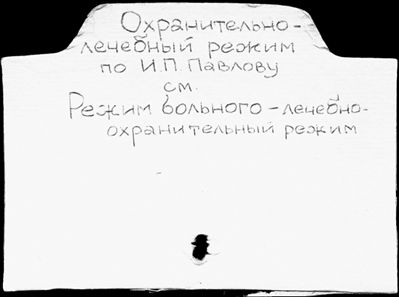 Охранительно-
лечебный режим
по И.П. Павлову
см.
Режим больного - лечебно-
охранительный режим